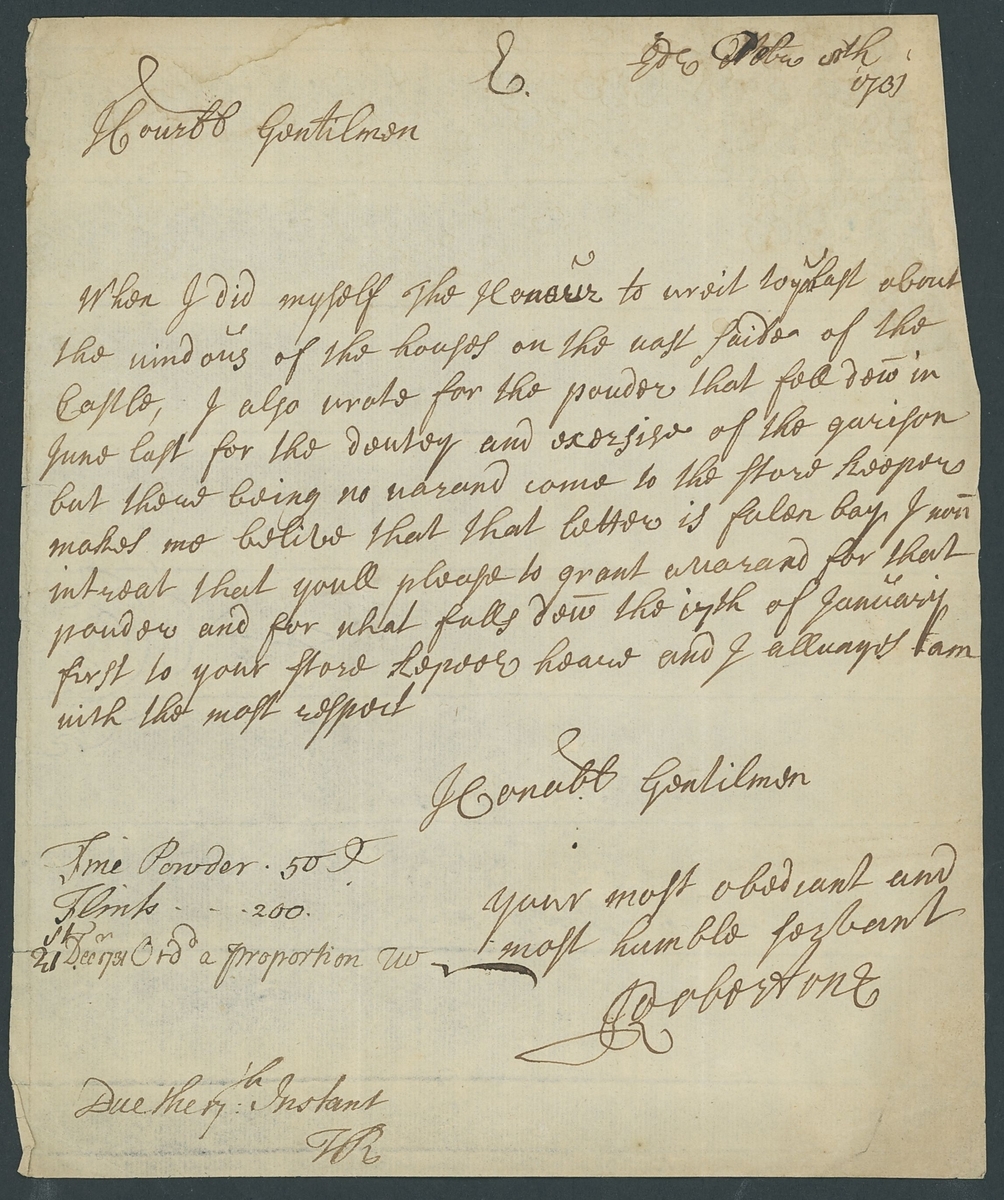 E.
1731
Hourbll Gentilmen
When I did myself The Honour to wreit to you last about
the windous of the houses on the wast saide of the
Castle, I also wrote for the pouder that fell dew in
June last for the deutey and exersise of the garison
but there being no warand come to the store keeper
makes me belive that that letter is falen bay, I now
intreat that youll please to grant a warand for that
pouder and for what falls dew the 17th of January
first to your store kepeer heare and I allwayes am
with the most respect
Honabll Gentilmen
your most obediant and
most humble servant
Robertone
Fine Powder . 50 l
Flints - - . 200.
21st Decr 1731 Ord d a proportion
Due the 17th Instant